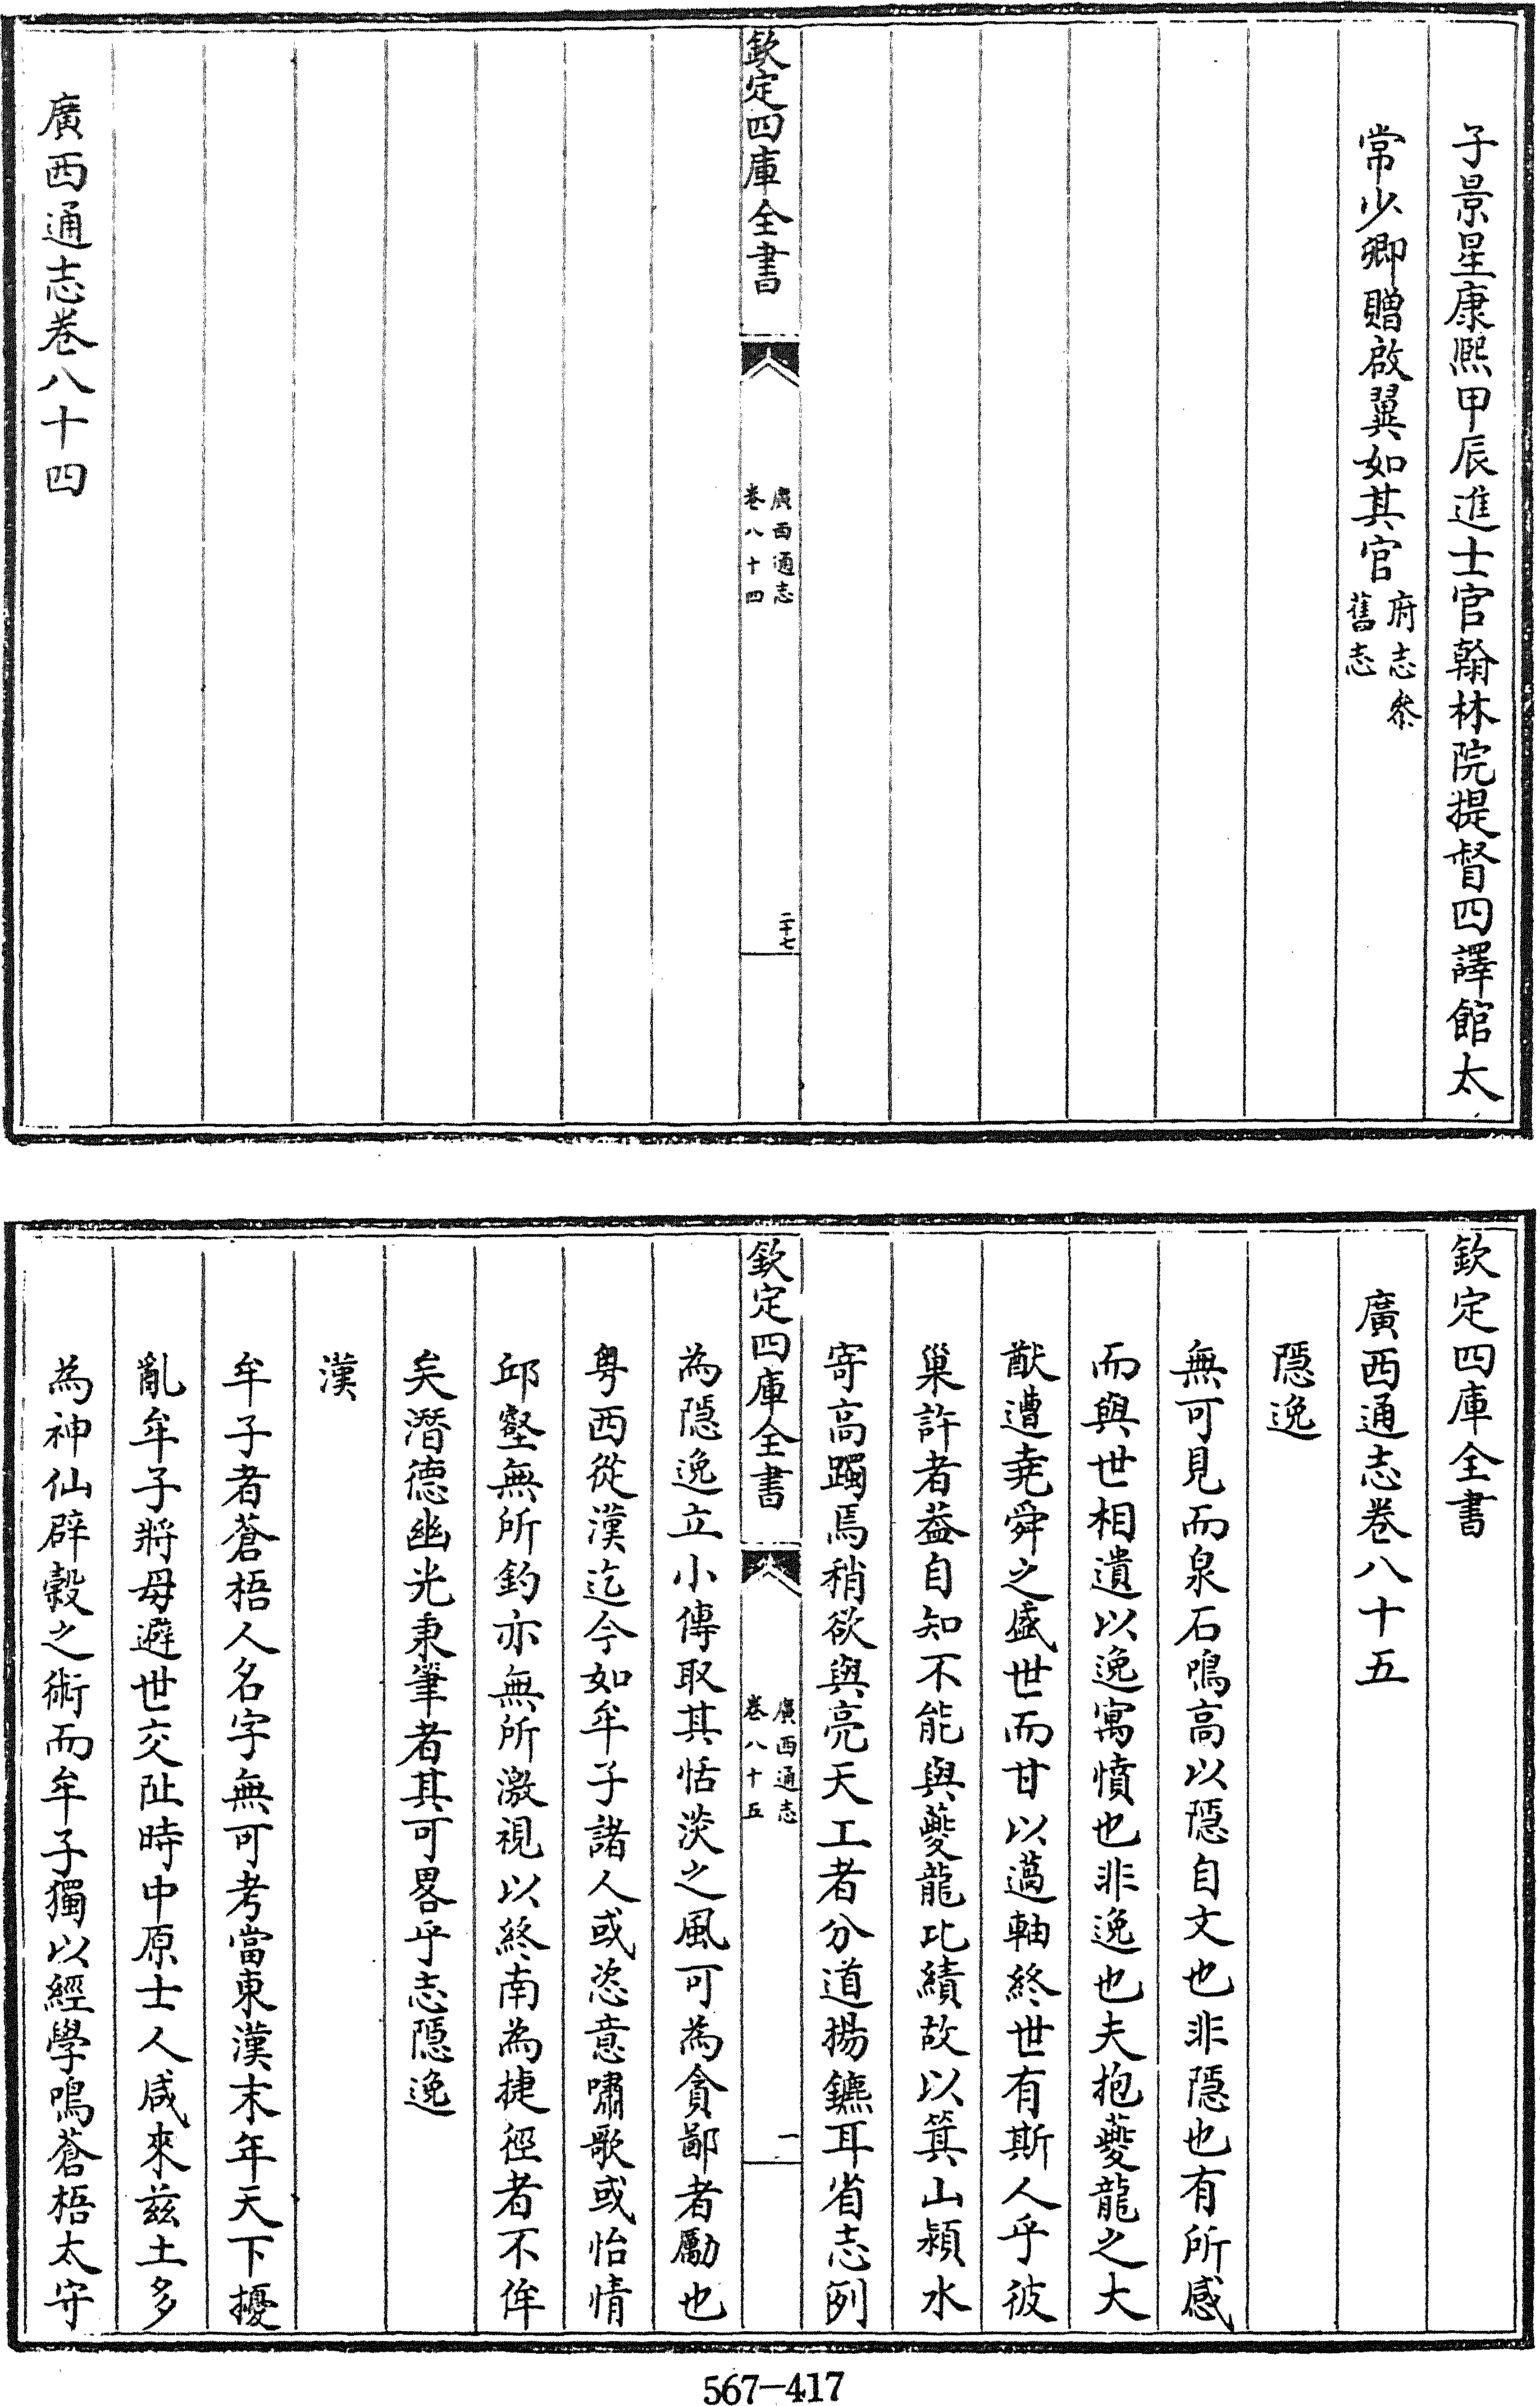 子景星康熙甲辰進士官翰林院提督四譯館太
常少卿贈啟翼如其官府志叅
舊志
欽定四庫全書
廣西通志
卷八十四
二十七
廣西通志卷八十四
欽定四庫全書
廣西通志卷八十五
隠逸
無可見而泉石鳴高以隠自文也非隠也有所感
而與世相遺以逸寓憤也非逸也夫抱夔龍之大
猷遭堯舜之盛世而甘以薖軸終世有斯人乎彼
巢許者葢自知不能與夔龍比績故以箕山潁水
寄高躅焉稍欲與亮天工者分道揚鑣耳省志例
欽定四庫全書
廣西通志
卷八十五
一
為隠逸立小傳取其恬淡之風可為貪鄙者勵也
粤西從漢迄今如牟子諸人或恣意嘯歌或怡情
邱壑無所釣亦無所激視以終南為捷徑者不侔
矣潛德幽光秉筆者其可畧乎志隠逸
漢
牟子者蒼梧人名字無可考當東漢末年天下擾
亂牟子將母避世交阯時中原士人咸來茲土多
為神仙辟穀之術而牟子獨以經學鳴蒼梧太守
567—417